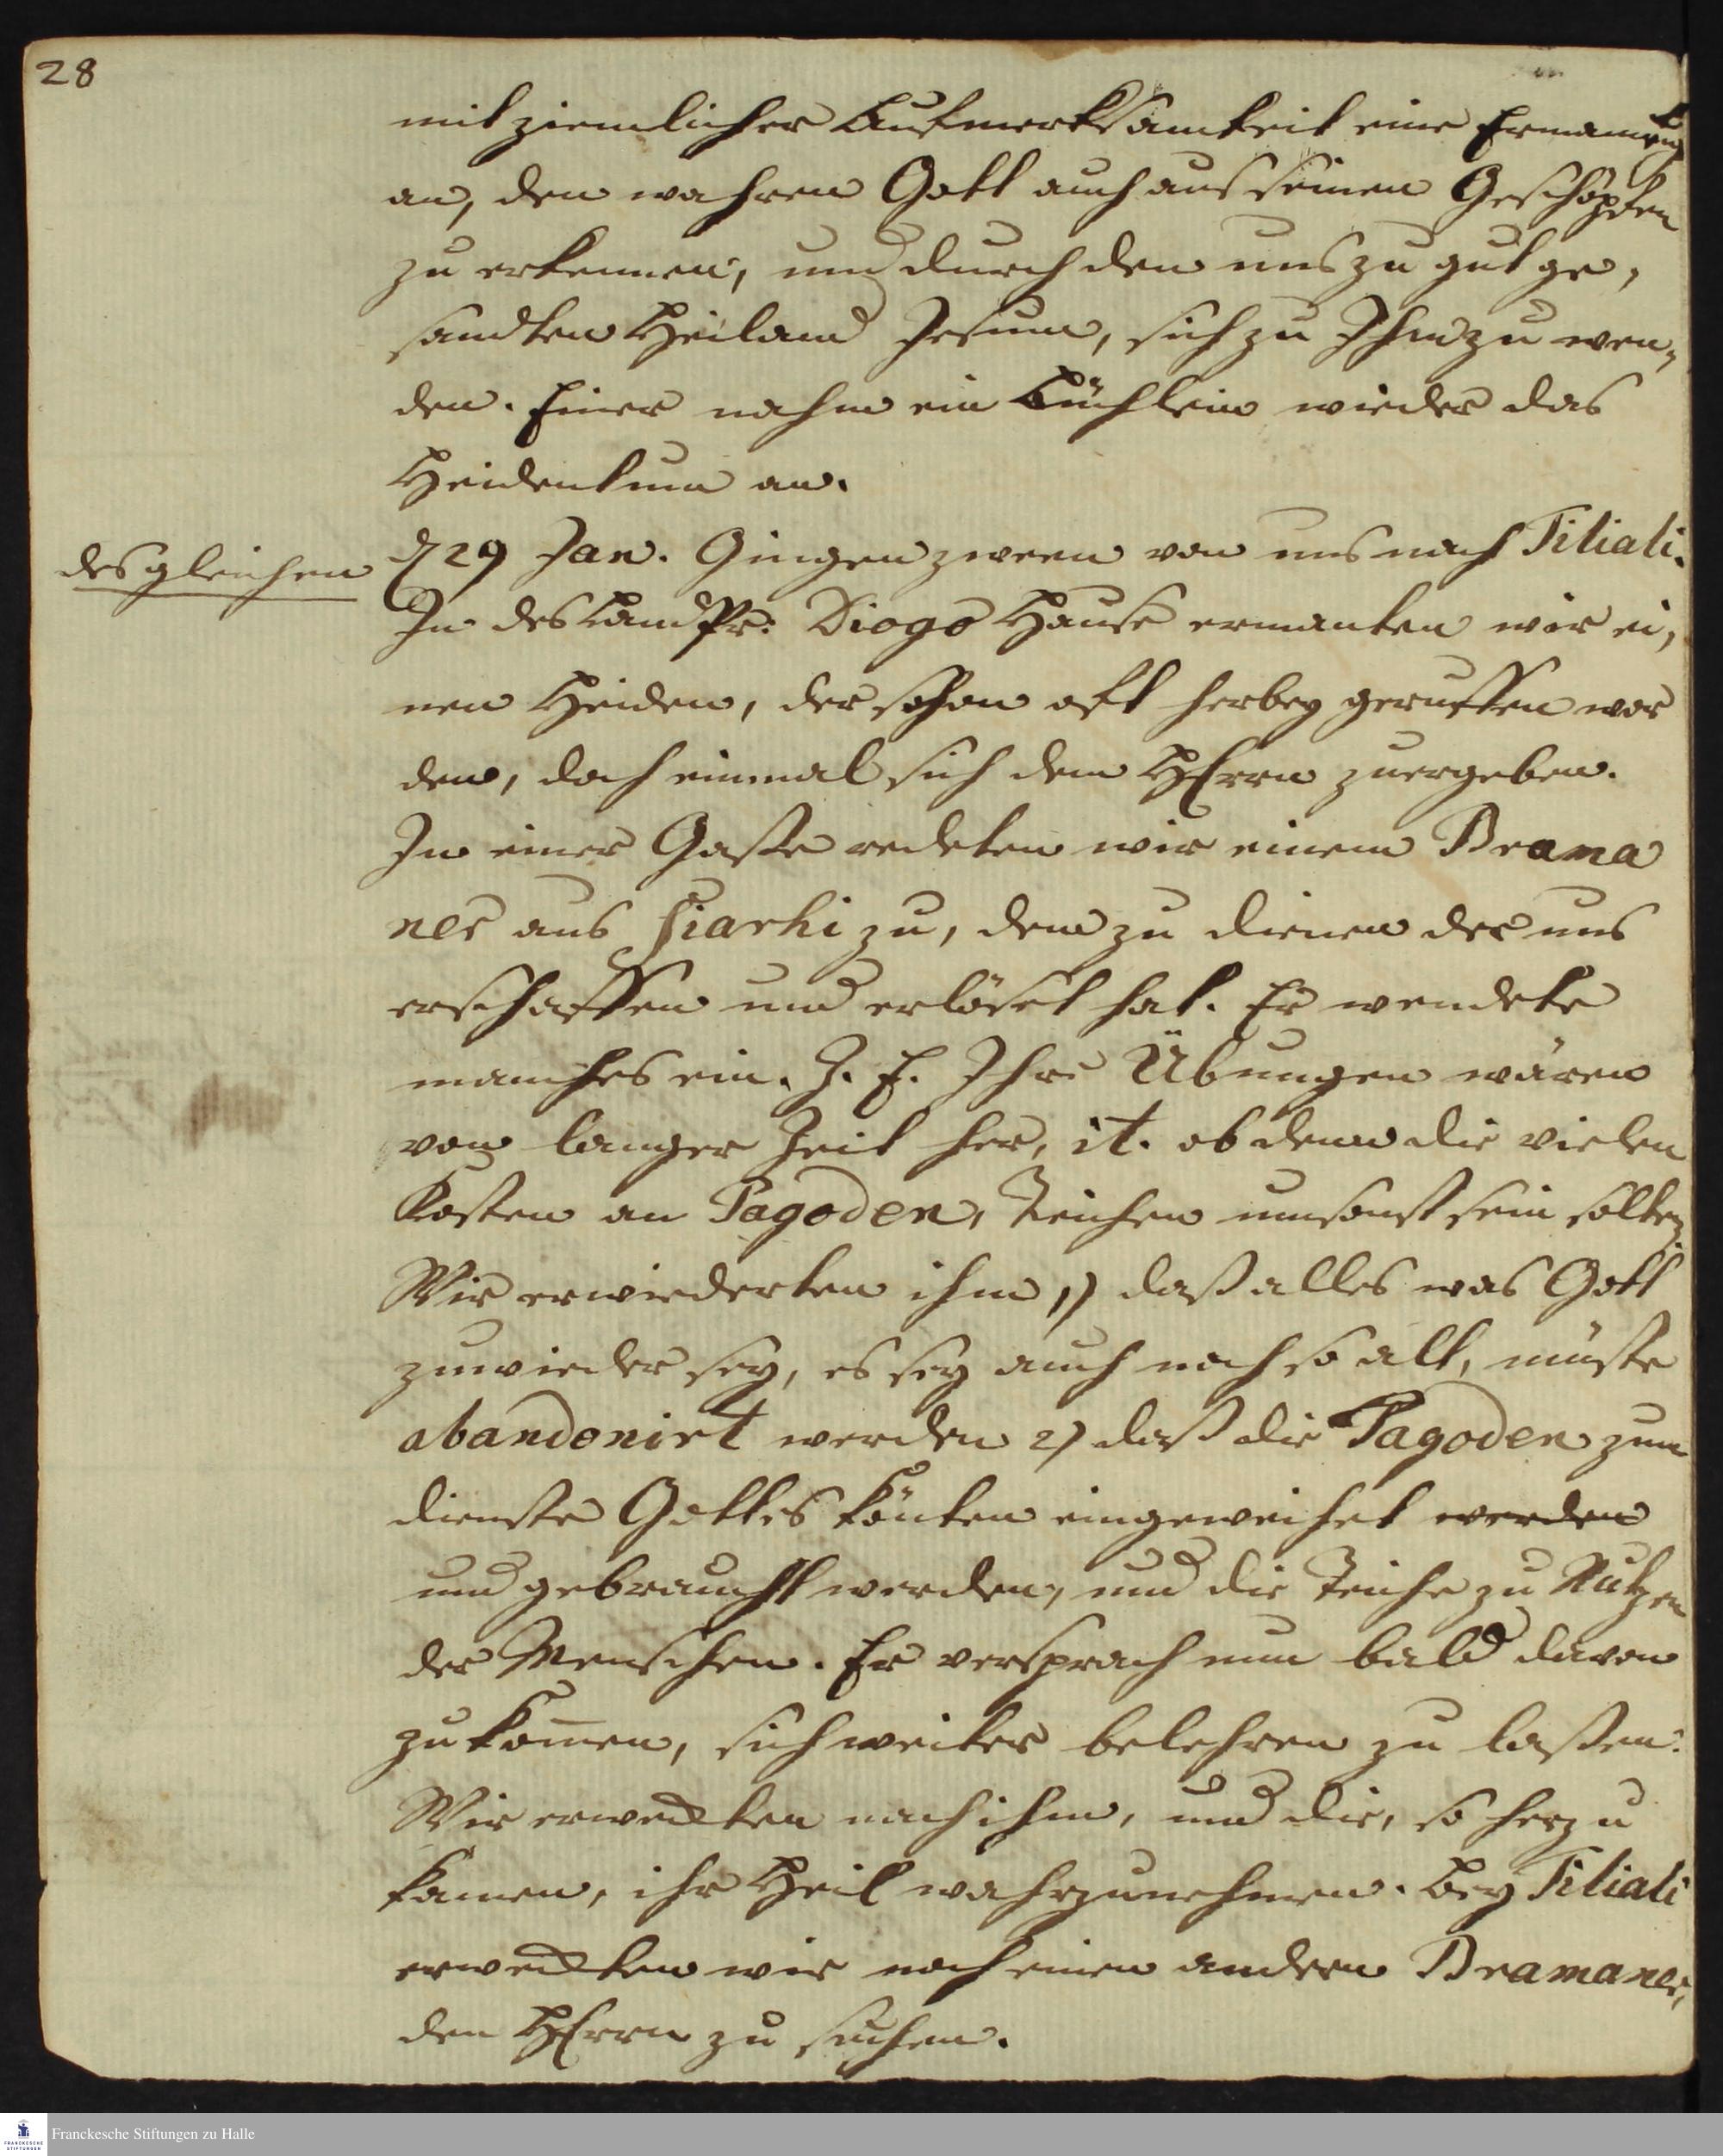 28
mit ziemlicher Aufmerksamkeit eine Ermanung
an, den wahren Gott auch aus seinen Geschöpfen
zu erkennen, und durch den uns zu gut ge,
sandten Heiland Jesum, sich zu Ihm zu wen,
den. Einer nahm ein Büchlein wieder das
Heidentum an.
desgleichen
d 29 Jan. Gingen zween von uns nach Tiliali.
In des Land Pr: Diogo Hause ermanten wir ei,
nen Heiden, der schon oft herbey geruffen wor
den, doch einmal sich dem HErrn zuergeben.
In einer Gasse redeten wir einem Brama
ner aus Siarhi zu, dem zu dienen der uns
erschaffen und erlöset hat. Er wendete
manches ein. Z. E. Ihre Übungen wären
von langer Zeit her, it. ob denn die vielen
Kosten an Pagoden, Teichen umsonst sein solten.
Wir erwiederten ihm 1) daß alles was Gott
zuwieder sey, es sey auch noch so alt, müste
abandonirt werden 2) daß die Pagoden zum
dienste Gottes könten eingeweihet werden
und gebraucht werden, und die Teiche zu Nutzen
der Menschen. Er versprach nun bald davon
zu komen, sich weiter belehren zu laßen.
Wir erweckten noch ihm, und die, so herzu
kamen, ihr Heil wahrzunehmen. Bey Tiliali
erweckten wir noch einen andern Bramaner,
den HErrn zu suchen.
Franckesche Stiftungen zu Halle
FRANCKESCHE
STIFTUNGEN